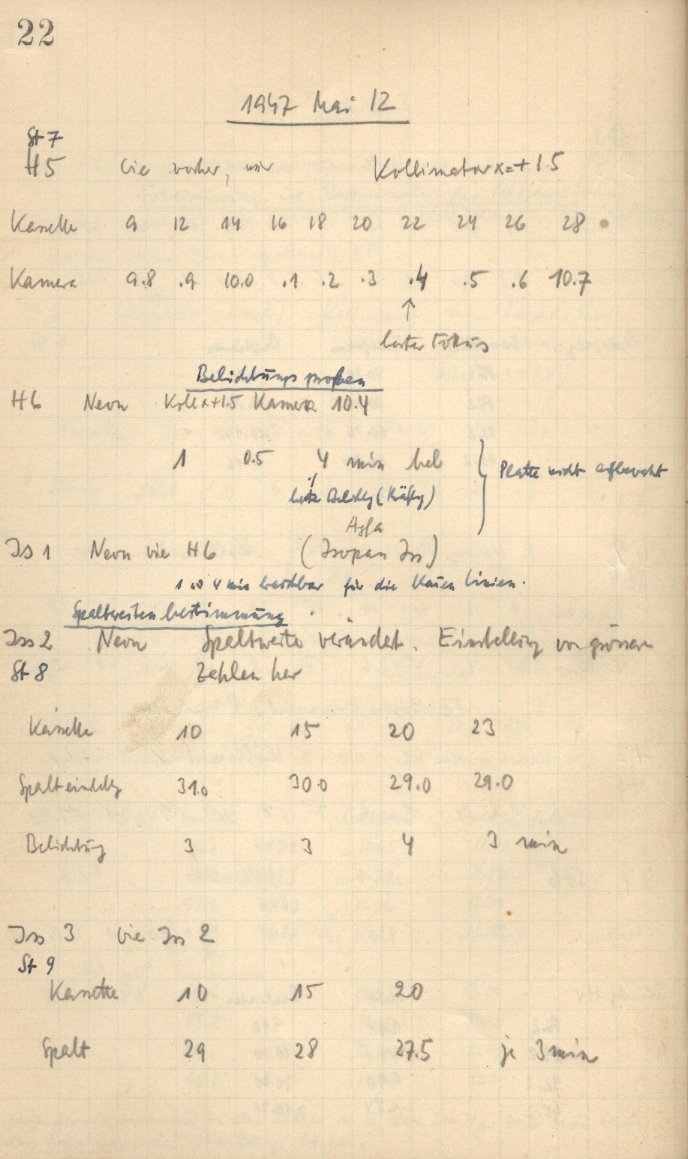 22
1947 Mai 12
St 7
H5 wie vorher, nur Kollimator x=+1.5
Kassette 9 12 14 16 18 20 22 24 26 28
Kamera 9.8 .9 10.0 .1 .2 .3 .4 .5 .6 10.7
↑
bester Fokus
Belichtungsproben
H6 Neon Koll x+1.5 Kamera 10.4
1 0.5 4 min bel
Platte nicht aufbewahrt
beste Belichtg (Kräftig)
Agfa
Iss 1 Neon wie H6 (Isopan Iss)
1 4 min für die Linien.
Spaltweitenbestimmung
Iss 2 Neon Spaltweite verändert. Einstellung von grösseren
St 8 Zahlen her
Kassette 10 15 20 23
Spalteinstellg 31.0 30.0 29.0 29.0
Belichtung 3 3 4 3 min
Iss 3 wie Iss 2
St 9
Kassette 10 15 20
Spalt 29 28 27.5 je 3 min